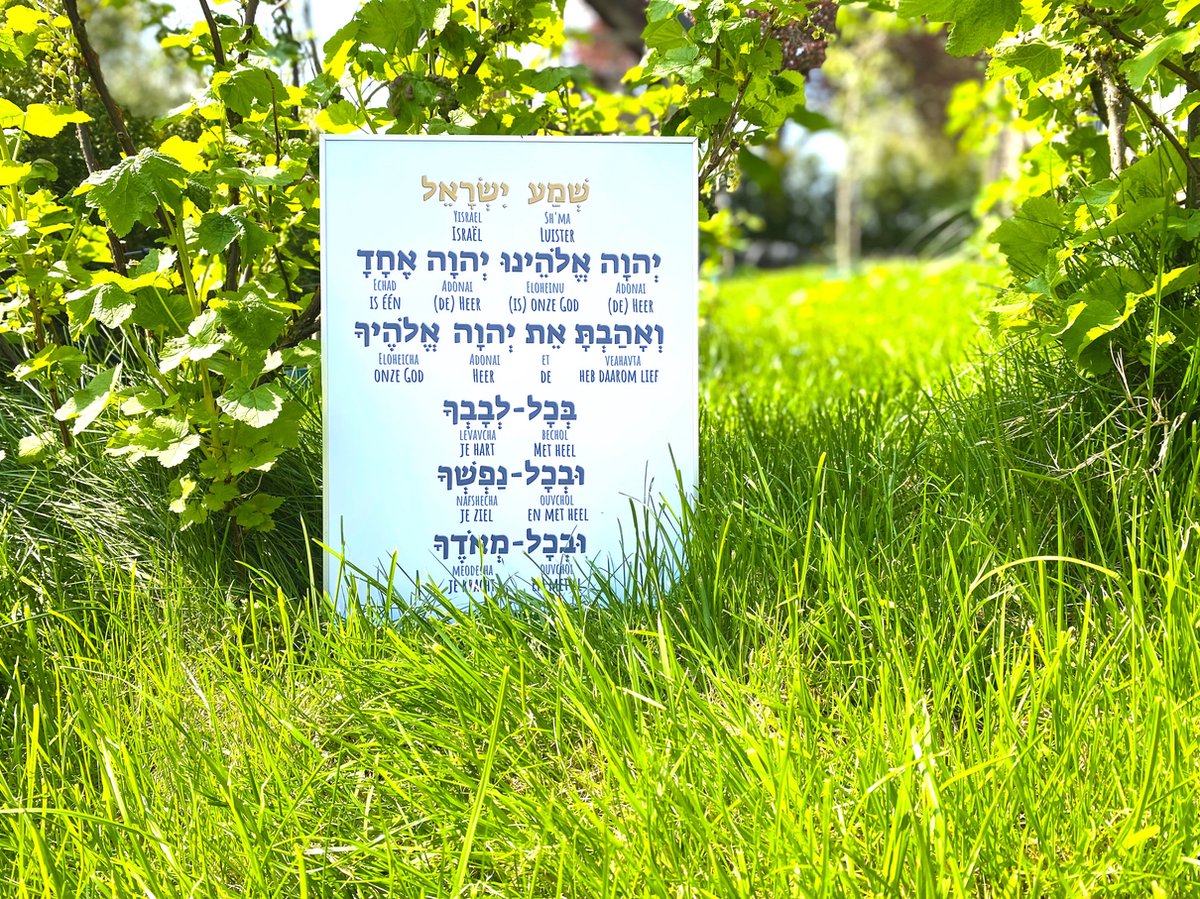 שְׁמַע יִשְׂרָאֵל
Yisrael Sh'ma
Israël Luister
יְהוָה אֱלֹהֵינוּ יְהוָה אֶחָד
Echad Adonai Eloheinu Adonai
is één (de) Heer (is) onze God (de) Heer
וְאָהַבְתָּ אֵת יְהוָה אֱלֹהֶיךָ
Eloheicha Adonai et veahavta
onze God Heer de heb daarom lief
בְּכָל-לְבָבְךָ
levavcha bechol
je hart Met heel
וּבְכָל-נַפְשְׁךָ
nafshecha ouvchol
je ziel en met heel
וּבְכָל-מְאֹדֶךָ
meodecha ouvchol
je kracht en met